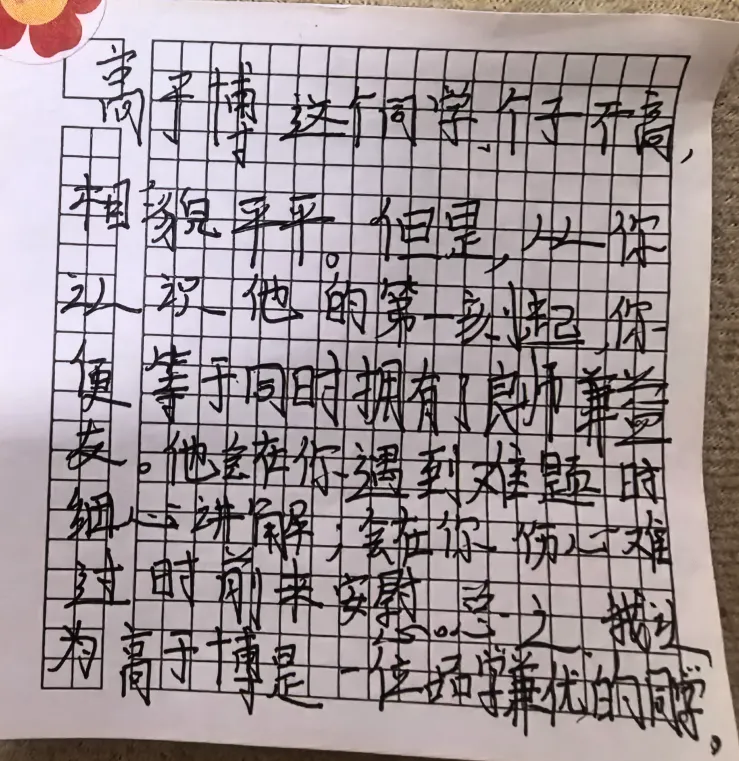 高子博这个同学,个子不高,
相貌平平。但是,从你
认识他的第一刻起,你
便等于同时拥有了良师兼益
友。他会在你遇到难题时
细心讲解,会在你伤心难
过时前来安慰。总之,我认
为高于博是一位品学兼优的同学,